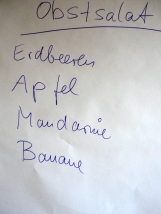 Obstsalat
Erdbeeren
Apfel
Mandarine
Banane